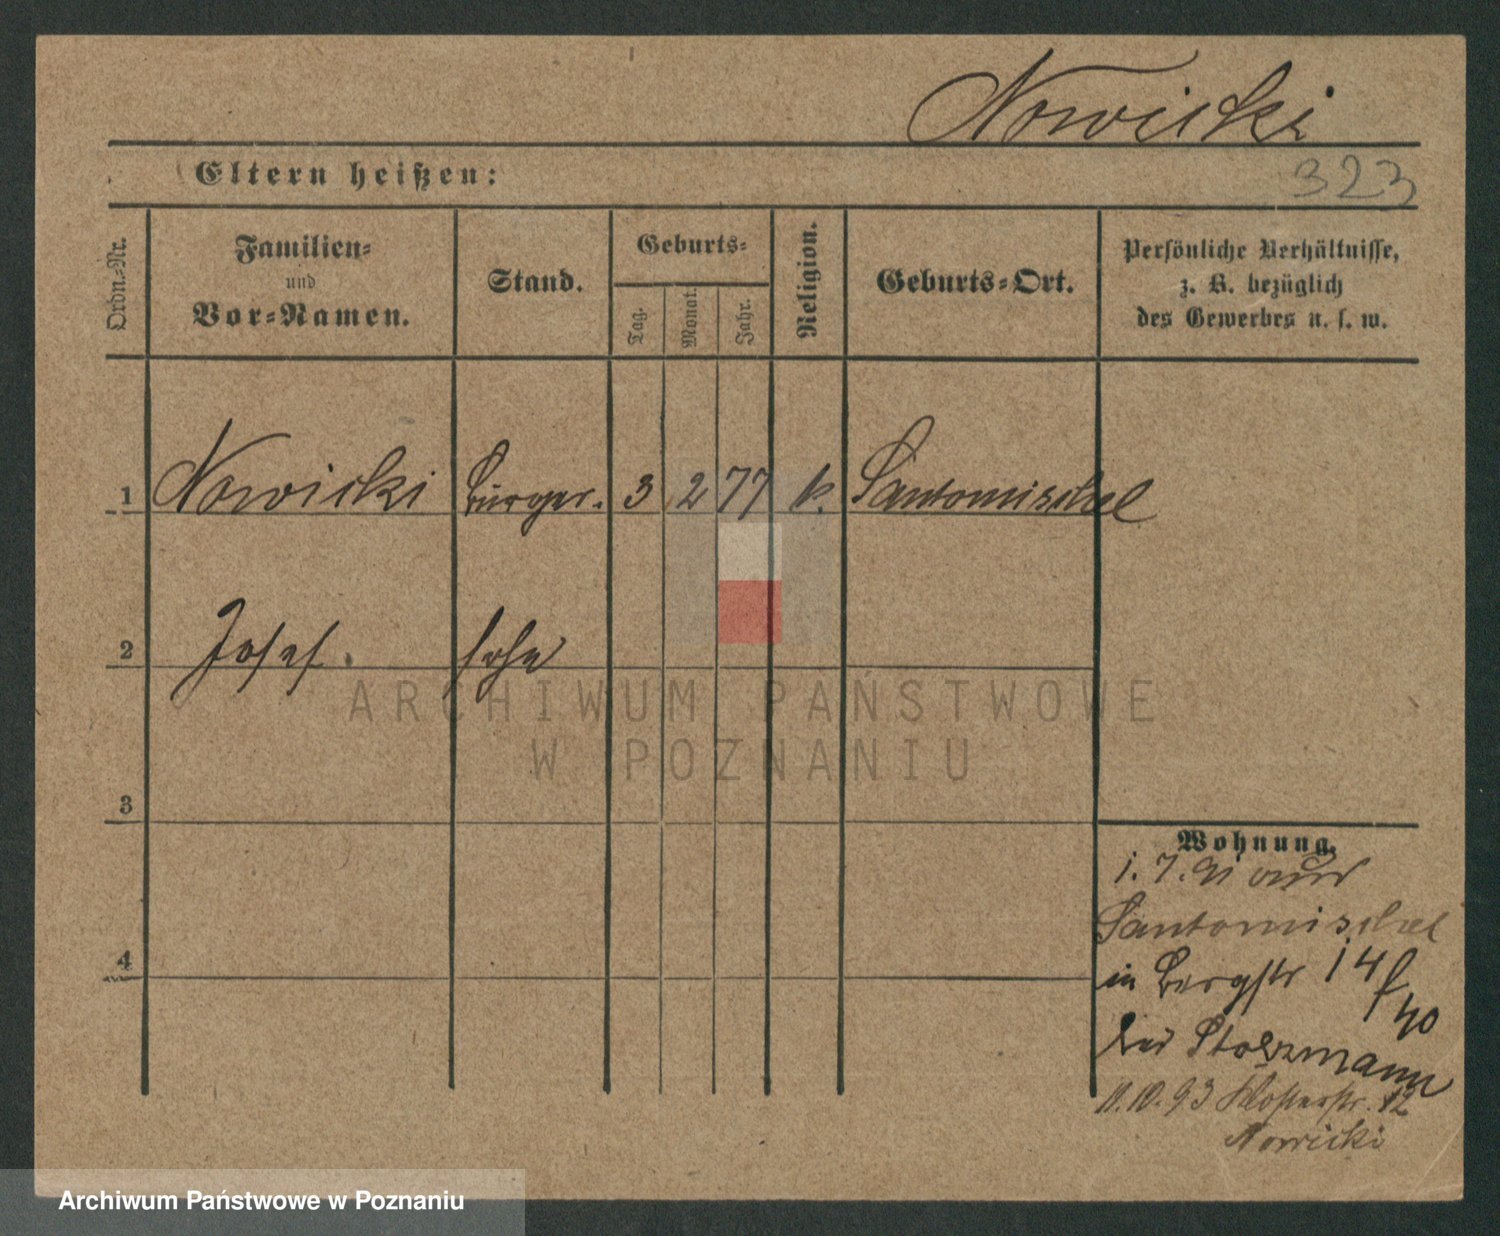 Nowicki
Eltern heißen:
323
Ordn.-Nr.
Familien-
und
Vor-Namen.
Stand.
Geburts-
Tag.
Monat.
Jahr.
Religion.
Geburts-Ort.
Persönliche Verhältnisse,
z. B. bezüglich
des Gewerbes u. s. w.
1 Nowicki Bürger- 3 2 77 k. Santomischel
2 Josef sohn
3
4
Wohnung.
1. 7. 91 aus
Santomischel
in Bergstr 14/40
bei Stolzmann
11.10.93 Klosterstr. 12
Nowicki
ARCHIWUM PAŃSTWOWE
W POZNANIU
Archiwum Państwowe w Poznaniu